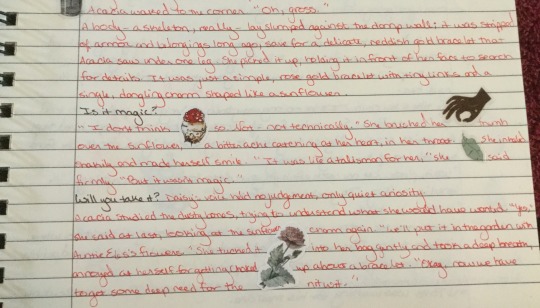 Acacia walked to the corner. "Oh, gross."
A body - a skeleton, really - lay slumped against the damp wall; it was stripped
of armor and belongings long ago, save for a delicate, reddish gold bracelet that
Acacia saw under one leg. She picked it up, holding it in front of her face to search
for details. It was just a simple, rose gold bracelet with tiny links and a
single, dangling charm shaped like a sunflower.
Is it magic?
"I don't think so. Not - not technically." She brushed her thumb
over the sunflower, a bitter ache careening at her heart, in her throat. She inhaled
shakily and made herself smile. "It was like a talisman for her," she said
firmly. "But it wasn't magic."
Will you take it? Daisy's voice held no judgment, only quiet curiosity.
Acacia studied the dusty bones, trying to understand what she would have wanted. "Yes,"
she said at last, looking at the sunflower charm again. "We'll put it in the garden with
Auntie flowers." She tucked it into her bag gently and took a deep breath,
annoyed at herself for getting choked up about a bracelet. "Okay, now we have
to get some deep need for the nitwit."